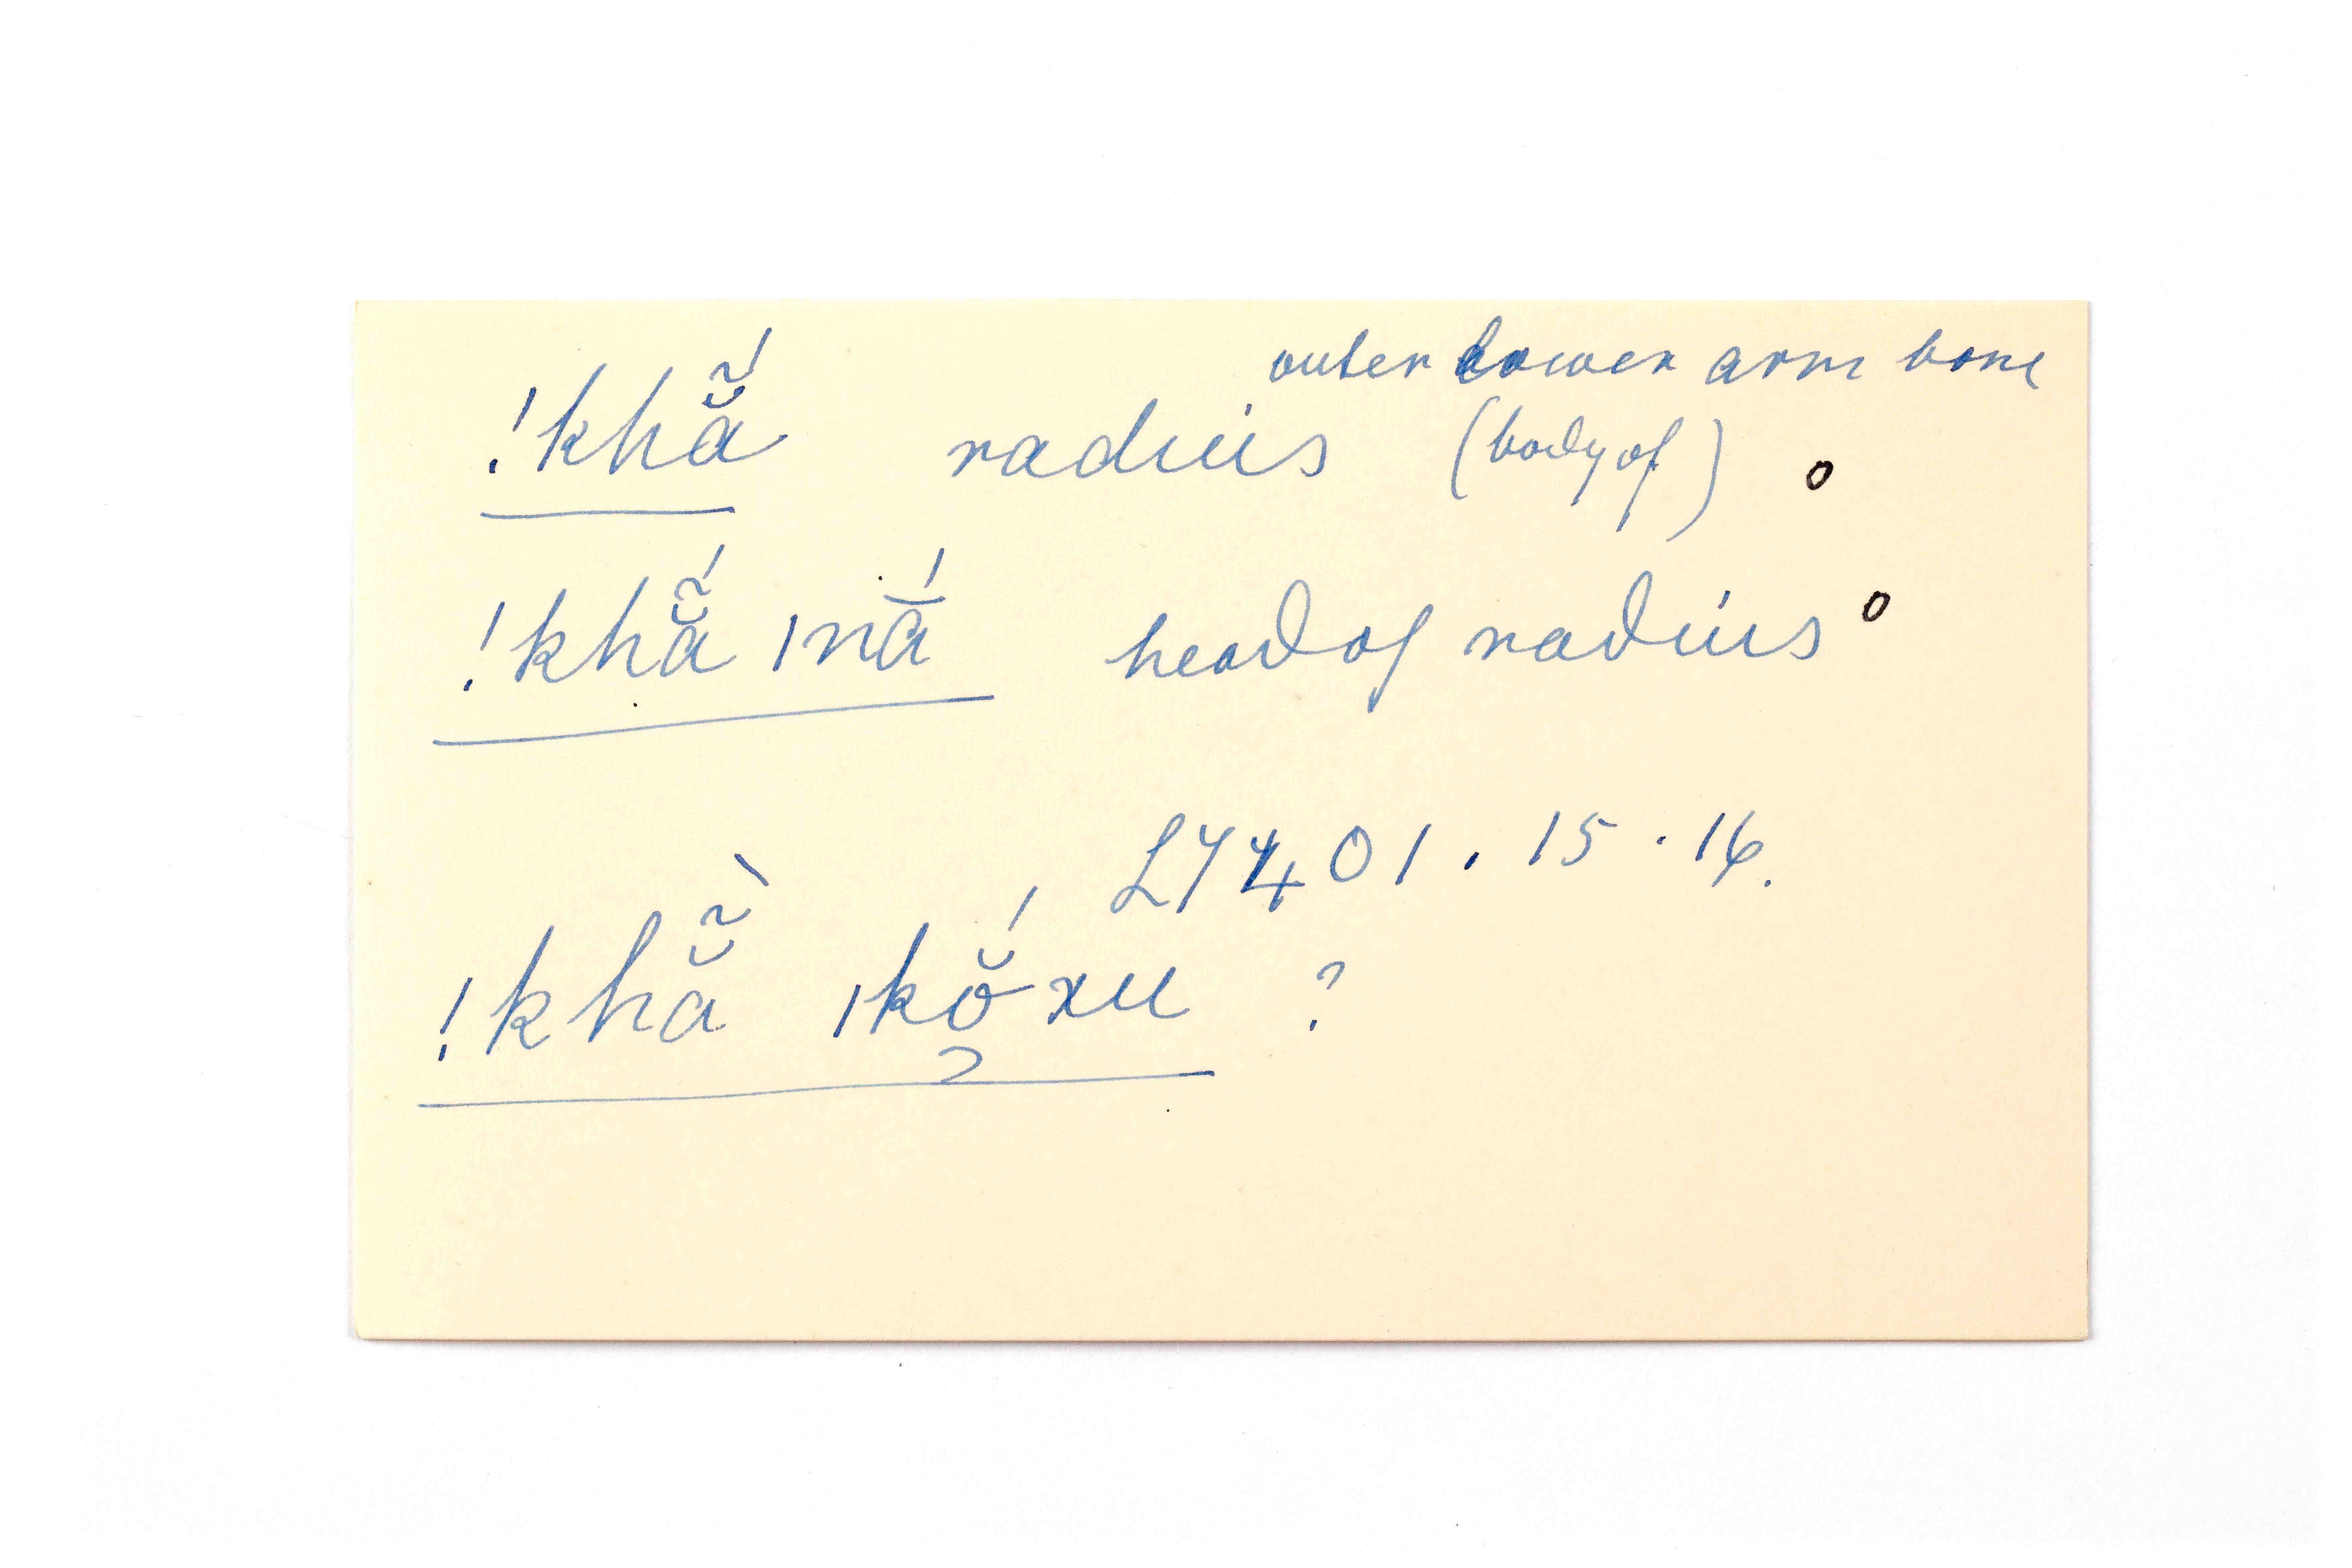 outer lower arm bone
!khã̆́ radius (body of) o
!khã̆́ |nā́ head of radius o
L74401. 15. 16.
!khã̆̀ |kŏ̜́xu ?